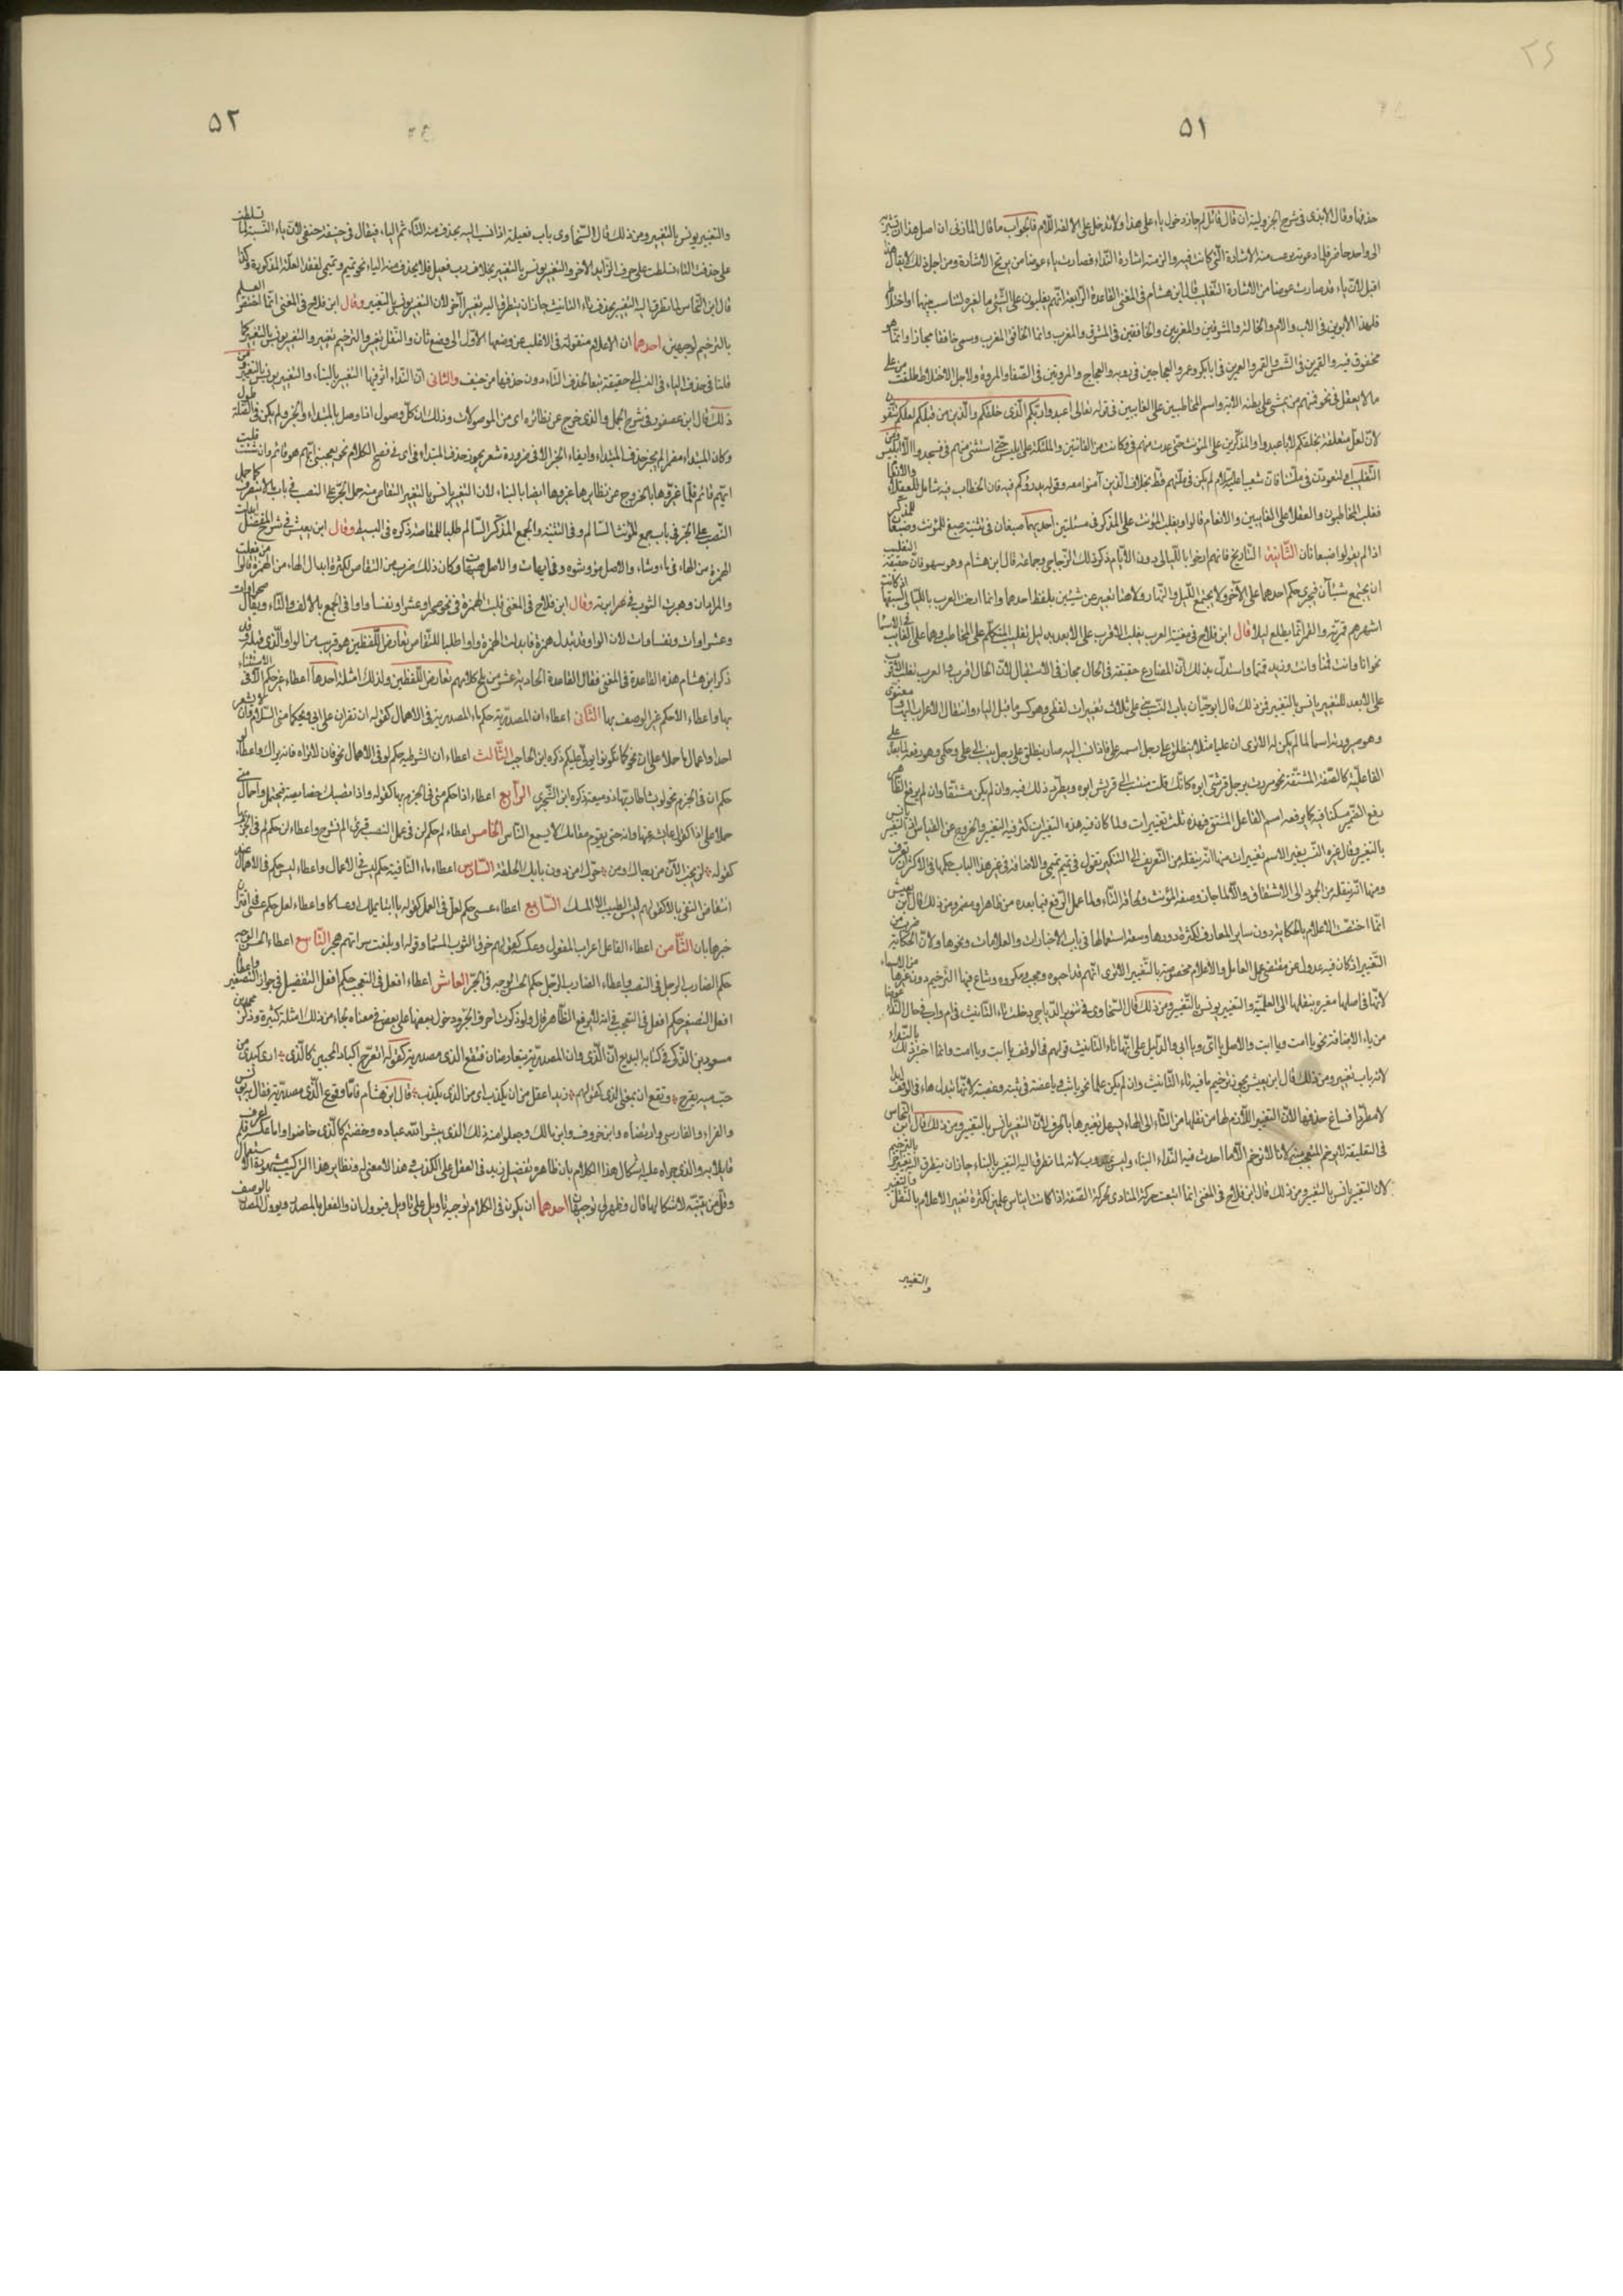 ٥١
حذفها وقال الأبذى فى شرح الجزولية ان قال قائل لم جاز دخول ياء على هذا ولا تدخل على الالف واللام فالجواب ما قال المازنى ان اصل هذا ان تشير به
الى واحد حاضر فلما دعوته نزعت منه الاشارة التى كانت فيه والزمته اشارة النداء فصارت ياء عوضا من نزع الاشارة ومن اجل ذلك لا يقال هذا
اقبل لان ياء قد صارت عوضا من الاشارة التغليب قال ابن هشام فى المغنى القاعدة الرابعة انهم يغلبون على الشئ ما لغيره لتناسب بينهما او اختلاط
فلهذا الأبوين فى الاب والام والخالة والمشرقين والمغربين والخافقين فى المشرق والمغرب وانما الخافق المغرب وسمى خافقا مجازا وانما هو
مخفوق فيه والقمرين فى الشمس والقمر والعمرين فى ابى بكر وعمر والعجاجين فى روبه والعجاج والمروتين فى الصفا والمروة ولاجل الاختلاط اطلقت من على
ما لا يعقل فى نحو فمنهم من يمشى على بطنه الآية واسم المخاطبين على الغايبين فى قوله تعالى اعبدوا ربكم الذى خلقكم والذين من قبلكم لعلكم تتقون
لان لعل متعلقة بخلقكم لا باعبدوا والمذكرين على المؤنث حتى عدت منهم فى وكانت من القانتين والملئكة على ابليس حتى استثنى منهم فى فسجدوا الا ابليس ومن
التغليب او لتعودن فى ملتنا فان شعيبا عليه السلام لم يكن فى ملتهم قط بخلاف الذين آمنوا معه وقوله يذرؤكم فيه فان الخطاب فيه شامل للعقلاء والانعام
فغلب المخاطبون والعقلاء على الغايبين والانعام قالوا ويغلب المؤنث على المذكر فى مسئلتين احديهما ضبعان فى تثنية ضبع للمؤنث وضبعان للمذكر
اذ لم يقولوا ضبعانان الثانية التاريخ فانهم ارخوا بالليالى دون الايام ذكر ذلك الزجاجى وجماعة قال ابن هشام وهو سهو فان حقيقة التغليب
ان يجتمع شيئان فيجرى حكم احدهما على الآخر ولا يجتمع الليل والنهار ولا هنا تعبير عن شيئين بلفظ احدهما وانما ارخت العرب بالليالى لسبقها اذ كانت
اشهرهم قمرية والقمر انما يطلع ليلا قال ابن فلاح فى مغنيه العرب يغلب الاقرب على الابعد بدليل تغليب المتكلم على المخاطب وهما على الغايب فى الاسماء
نحو انا وانت قمنا وانت وزيد قمتما واستدل بذلك ان المضارع حقيقة فى الحال مجاز فى الاستقبال لان الحال اقرب والعرب تغلب الاقرب
على الابعد التغيير يانس بالتغيير فمن ذلك قال ابو حيان باب النسب مبنى على ثلاث تغييرات لفظى وهو كسر ما قبل الياء وانتقال الاعراب اليها ومعنوى
وهو صيرورته اسما لما لم يكن له الا ترى ان عليا مثلا ينطلق على رجل اسمه على فاذا نسب اليه صار ينطلق على رجل ينسب الى على وحكمى وهو رفعه لما بعده على
الفاعلية كالصفة المشتقة نحو مررت برجل قرشى ابوه كانك قلت منتسب الى قريش ابوه ويطرد ذلك فيه وان لم يكن مشتقا وان لم يرفع الظاهر
رفع الضمير مستكنا فيه كما يرفعه اسم الفاعل المشتق فهذه ثلث تغييرات ولما كان فيه هذه التغييرات كثر فيه التغيير والخروج عن القياس اذ التغيير يانس
بالتغيير وقال غيره النسب يغير الاسم تغييرات منها انه ينقله من التعريف الى التنكير تقول فى تميم تميمى والاضافة فى غير هذا الباب حكمها فى الاكثر ان تعرف
ومنها انه ينقله من الجمود الى الاشتقاق والا لما جاز وصف المؤنث ولحاق التاء ولما عمل الرفع فيما بعده من ظاهر او مضمر ومن ذلك قال ابن يعيش
انما اختصت الاعلام بالحكاية دون ساير المعارف لكثرة دورها وسعة استعمالها فى باب الاخبارات والعلامات ونحوها ولان الحكاية ضرب من
التغيير اذ كان فيه عدول عن مقتضى عمل العامل والاعلام مخصوصة بالتغيير الا ترى انهم قد احبوه ومحبب ومكوزه وشاع فيها الترخيم دون غيرها من الاسماء
لانها فى اصلها مغيرة بنقلها الى العلمية والتغيير يونس بالتغيير ومن ذلك قال السخاوى فى تنوير الدياجى دخلت تاء التانيث فى ام واب فى حال النداء عوضا
من ياء الاضافة نحو يا امت ويا ابت والاصل يا امى ويا ابى والدليل على انها تاء التانيث قولهم فى الوقف يا ابت ويا امت وانما اختير ذلك بالنداء
لانه باب تغيير ومن ذلك قال ابن يعيش يجوز ترخيم ما فيه تاء التانيث وان لم يكن علما نحو يا ثب ويا عض فى ثبة وعضة لانها تبدل هاء فى الوقف ابدا
لا مطردا فساغ حذفها لان التغيير اللازم لها من نقلها من التاء الى الهاء يسهل تغييرها بالحذف لان التغيير يانس بالتغيير ومن ذلك قال ابن النحاس
فى التعليقة لا يرخم لانا لا نرخم الا ما احدث فيه النداء البناء وليس لانه لما تطرق اليه التغيير بالبناء جاز ان يتطرق اليه تغيير آخر بالترخيم
لان التغيير يانس بالتغيير ومن ذلك قال ابن فلاح فى المغنى انما اتبعت حركة المنادى حركة الصفة اذا كانت ابنا بين علمين لكثرة تغيير الاعلام بالنقل والتغيير
والتغيير
٥٢
والتغيير يونس بالتغيير ومن ذلك قال السخاوى باب فعيلة اذا نسب اليه يحذف منه التاء ثم الياء فيقال فى حنيفة حنفى لان ياء النسبة لما تسلطت
على حذف التاء تسلطت على حرف الزايد الآخر والتغيير يونس بالتغيير بخلاف باب فعيل فلا يحذف منه الياء نحو تميم وتميمى لفقد العلة المذكورة وكذا
قال ابن النحاس لما تطرق اليه التغيير بحذف تاء التانيث جاز ان يتطرق اليه تغيير آخر لان التغيير يونس بالتغيير وقال ابن فلاح فى المغنى انما اختص العلم
بالترخيم لوجهين احدهما ان الاعلام منقولة فى الاغلب عن وضعها الاول الى وضع ثان والنقل تغيير والترخيم تغيير والتغيير يونس بالتغيير كما
قلنا فى حذف الياء فى النسب الى حنيفة تبعا لحذف التاء دون حذفها من حنيف والثانى ان النداء اثر فيها التغيير بالبناء والتغيير يونس بالتغيير ومن
ذلك قال ابن عصفور فى شرح الجمل والذى خرج عن نظائره اى من الموصولات وذلك ان كل موصول اذا وصل بالمبتداء والخبر ولم يكن فى الصلة طول
وكان المبتداء مضمرا لم يجز حذف المبتداء وابقاء الخبر الا فى ضرورة شعر يجوز حذف المبتداء فى اى فى فصيح الكلام نحو يعجبنى ايهم هو قائم وان شئت قلت
ايهم قائم فلما غيروها بالخروج عن نظايرها غيروها ايضا بالبناء لان التغيير يانس بالتغيير التقاص منه حمل الجر على النصب فى باب لا ينصرف كما حمل
النصب على الجر فى باب جمع المؤنث السالم وفى التثنية والجمع المذكر السالم طلبا للمقاصة ذكره فى البسيط وقال ابن يعيش فى شرح المفصل ابدلت
الهمزة من الهاء فى ماء وشاء والاصل موه وشوه وفى ايهات والاصل هيهات وكان ذلك ضرب من التقاص لكثرة ابدال الهاء من الهمزة قالوا
وقال ابن فلاح فى المغنى قلبت الهمزة فى نحو صحراء وعشراء ونفساء واوا فى الجمع بالالف والتاء ويقال صحراوات
وعشراوات ونفساوات لان الواو قد تبدل همزة فابدلت الهمزة واوا طلبا للتقاص تقارض اللفظين هو قريب من الواو الذى قبله وقد
ذكر ابن هشام هذه القاعدة فى المغنى فقال القاعدة الحادية عشر من ملح كلامهم تقارض اللفظين ولذلك امثلة احدها اعطاء غير حكم الا فى الاستثناء
بها واعطاء الا حكم غير الوصف بها الثانى اعطاء ان المصدرية حكم ما المصدرية فى الاهمال كقوله ان تقرآن على اسماء ويحكما منى السلام وان لا تشعرا
احدا واعمال ما حملا على ان نحو كما تكونوا يولى عليكم ذكره ابن الحاجب الثالث اعطاء ان الشرطية حكم لو فى الاهمال نحو فان لا تراه فانه يراك واعطاء لو
حكم ان فى الجزم نحو لو يشا طار بها ذو ميعة ذكره ابن الشجرى الرابع اعطاء اذا حكم متى فى الجزم بها كقوله واذا تصبك خصاصة فتحمل واهمال متى
حملا على اذا كقول عايشة عنها وانه متى يقوم مقامك لا يسمع الناس الخامس اعطاء لم حكم لن فى عمل النصب قرئ الم نشرح واعطاء لن حكم لم فى الجزم
كقوله لن يخب الآن من رجائك من حرك من دون بابك الحلقة السادس اعطاء ما النافية حكم ليس فى الاعمال واعطاء ليس حكم ما فى الاهمال عند
انتقاض النفى بالا كقولهم ليس الطيب الا المسك السابع اعطاء عسى حكم لعل فى العمل كقوله يا ابتا علك او عساكا واعطاء لعل حكم عسى فى اقتران
خبرها بان الثامن اعطاء الفاعل اعراب المفعول وعكسه كقولهم خرق الثوب المسمار وقوله او بلغت سوآتهم هجر التاسع اعطاء الحسن الوجه
حكم الضارب الرجل فى النصب واعطاء الضارب الرجل حكم الحسن الوجه فى الجر العاشر اعطاء افعل فى التعجب حكم افعل التفضيل فى جواز التصغير واعطاء
افعل التفضيل حكم افعل فى التعجب فى انه لا يرفع الظاهر قال ولو ذكرت احرف الجر ودخول بعضها على بعض فى معناه لجاء من ذلك امثلة كثيرة وذكر محمد بن
مسعود بن الذكى فى كتابه البديع ان الذى وان المصدرية يتقارضان فتقع الذى مصدرية كقوله اتقرح اكباد المحبين كالذى ارى كبدى من
حب مية يقرح وتقع ان بمعنى الذى كقولهم زيد اعقل من ان يكذب اى من الذى يكذب قال ابن هشام فاما وقوع الذى مصدرية فقال به يونس
والفراء والفارسى وارتضاه وابن خروف وابن مالك وجعلوا منه ذلك الذى يبشر الله عباده وخضتم كالذى خاضوا واما عكسه فلم اعرف
قايلا به والذى جراه عليه اشكال هذا الكلام بان ظاهره تفضيل زيد فى العقل على الكذب وهذا لا معنى له ونظاير هذا التركيب مشهورة الاستعمال
وقل من يتنبه لاشكالها قال وظهر لى توجيهان احدهما ان يكون فى الكلام توجيه تاويل على تاويل فيؤول ان والفعل بالمصدر ويؤول المصدر بالوصف